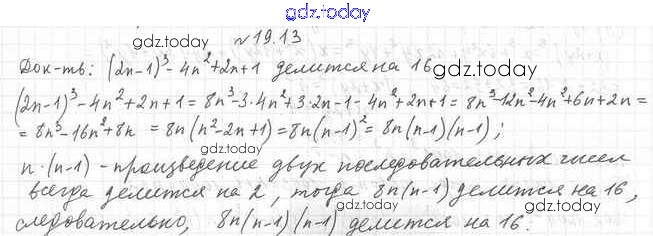 gdz.today
№19.13
gdz.today
Док-ть: (2n-1)³ - 4n² + 2n + 1 делится на 16
gdz.today
(2n-1)³ - 4n² + 2n + 1 = 8n³ - 3·4n² + 3·2n - 1 - 4n² + 2n + 1 = 8n³ - 12n² - 4n² + 6n + 2n =
= 8n³ - 16n² + 8n = 8n(n² - 2n + 1) = 8n(n-1)² = 8n(n-1)(n-1);
n·(n-1) - произведение двух последовательных чисел
всегда делится на 2, тогда 8n(n-1) делится на 16,
следовательно, 8n(n-1)(n-1) делится на 16.
gdz.today
gdz.today